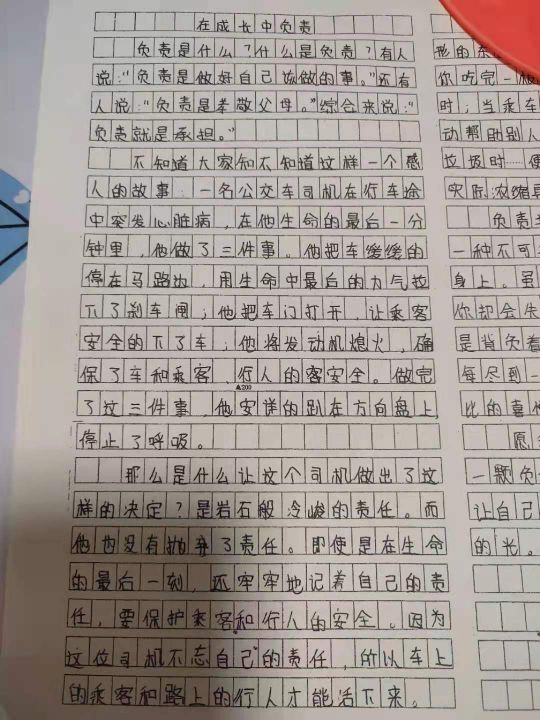 在成长中负责
负责是什么？什么是负责？有人
说：“负责是做好自己该做的事。”还有
人说：“负责是孝敬父母。”综合来说：“
负责就是承担。”
不知道大家知不知道这样一个感
人的故事：一名公交车司机在行车途
中突发心脏病，在他生命的最后一分
钟里，他做了三件事。他把车缓缓的
停在马路边，用生命中最后的力气拉
下了刹车闸；他把车门打开，让乘客
安全的下了车；他将发动机熄火，确
保了车和乘客、行人的客安全。做完
▲200
了这三件事，他安详的趴在方向盘上，
停止了呼吸。
那么是什么让这个司机做出了这
样的决定？是岩石般冷峻的责任。而
他也没有抛弃了责任。即使是在生命
的最后一刻，还牢牢地记着自己的责
任，要保护乘客和行人的安全。因为
这位司机不忘自己的责任，所以车上
的乘客和路上的行人才能活下来。
形的东
你吃完一
时；当乘车
动帮助别人
垃圾时……便
实际浓缩
负责
一种不可
身上。虽
你却会失
是背负着
每尽到一
比的喜
愿
一颗负
让自己
的光。